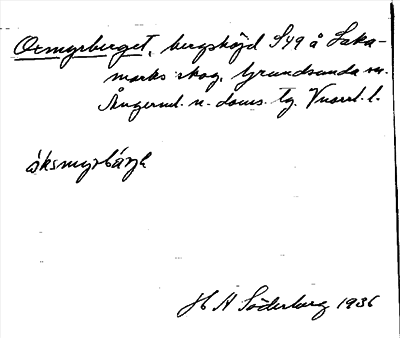 Oxmyrberget, bergshöjd S49 å Saka-
marks skog, Grundsunda sn.
Ångerml. n. doms. tg. Vnorrl. l.
H A Söderberg 1936